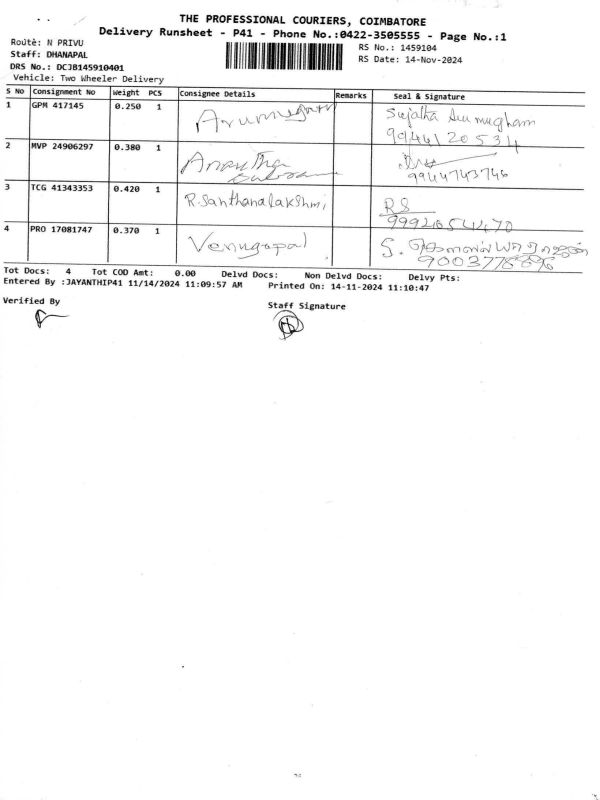 THE PROFESSIONAL COURIERS, COIMBATORE
Delivery Runsheet - P41 - Phone No.:0422-3505555 - Page No.:1
Route: N PRIVU
Staff: DHANAPAL
DRS No.: DCJB145910401
Vehicle: Two Wheeler Delivery
RS No.: 1459104
RS Date: 14-Nov-2024
S No Consignment No Weight PCS Consignee Details Remarks Seal & Signature
1 GPM 417145 0.250 1 Arumugam Sujatha Arumugham
9944120534
2 MVP 24906297 0.380 1 Anantha
9944743746
3 TCG 41343353 0.420 1 R. Santhanalakshmi RS
4 PRO 17081747 0.370 1 Venugopal S.
Tot Docs: 4 Tot COD Amt: 0.00 Delvd Docs: Non Delvd Docs: Delvy Pts:
Entered By :JAYANTHIP41 11/14/2024 11:09:57 AM Printed On: 14-11-2024 11:10:47
Verified By
Staff Signature